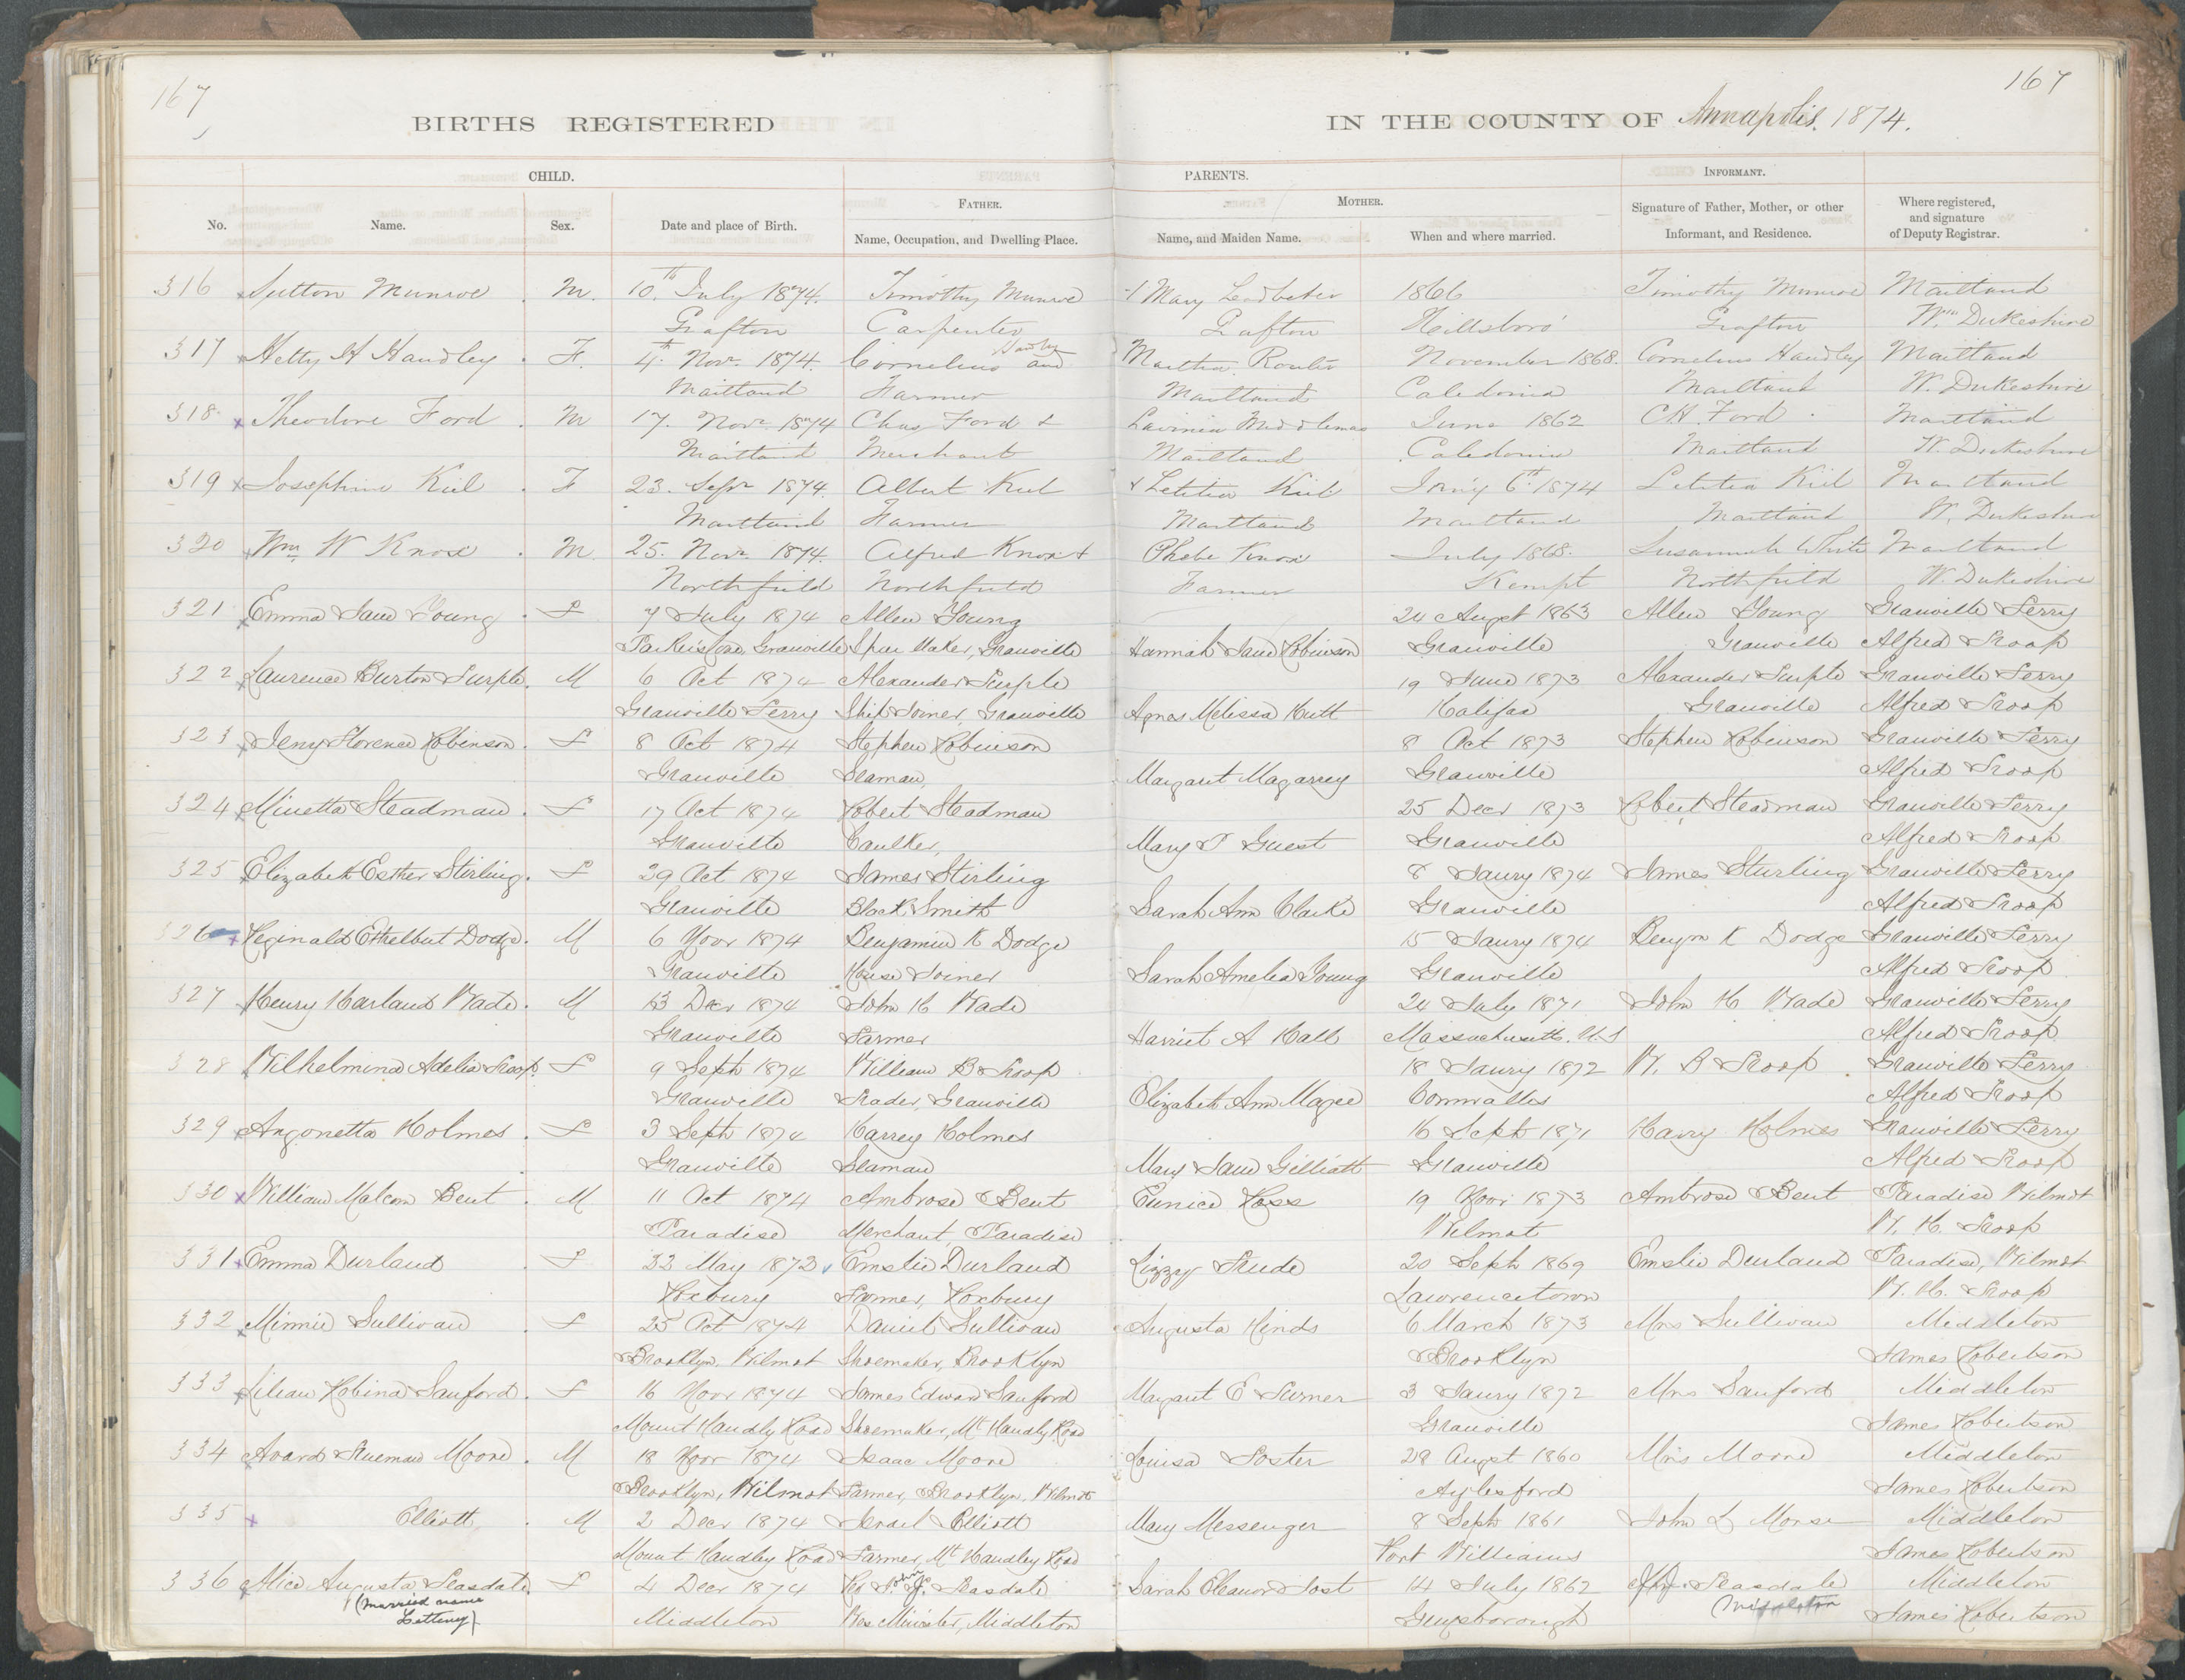 167
167
BIRTHS REGISTERED IN THE COUNTY OF Annapolis. 1874.
CHILD. PARENTS. INFORMANT.
FATHER. MOTHER.
No. Name. Sex. Date and place of Birth. Name, Occupation, and Dwelling Place. Name, and Maiden Name. When and where married. Signature of Father, Mother, or other Informant, and Residence. Where registered, and signature of Deputy Registrar.
316 Sutton Munroe M. 10th July 1874. Timothy Munroe Mary 1866 Timothy Munroe Maitland
Grafton Carpenter Grafton Hillsboro' Grafton Wm Dukeshire
317 Hetty H Handley F. 4th Novr 1874. Cornelius Handley and Martha November 1868. Cornelius Handley Maitland
Maitland Farmer Maitland Caledonia Maitland W. Dukeshire
318 Theodore Ford M 17. Novr 1874 Chas Ford & Lavinia Middlemas June 1862 CH. Ford Maitland
Maitland Merchant Maitland Caledonia Maitland W. Dukeshire
319 Josephine Kiel F 23. Sepr 1874. Albert Kiel & Letitia Kiel 6th 1874 Letitia Kiel Maitland
Maitland Farmer Maitland Maitland Maitland W. Dukeshire
320 Wm W Knox M 25. Novr 1874. Alfred Knox & Phebe Knox July 1868. Susannah White Maitland
Northfield Northfield Farmer Kempt Northfield W. Dukeshire
321 Emma Jane Young F 7 July 1874 Allen Young 24 Augst 1863 Allen Young Granville Ferry
Granville Maker, Granville Hannah Jane Robinson Granville Granville Alfred Troop
322 Laurence Burton Surple M 6 Oct 1874 Alexander Surple 19 June 1873 Alexander Surple Granville Ferry
Granville Ferry Ship Joiner, Granville Agnes Melissa Hutt Halifax Granville Alfred Troop
323 Jeny Florence Robinson F 8 Oct 1874 Stephen Robinson 8 Oct 1873 Stephen Robinson Granville Ferry
Granville Seaman, Margaret Magarrey Granville Alfred Troop
324 Minetta Steadman F 17 Oct 1874 Robert Steadman 25 Decr 1873 Robert Steadman Granville Ferry
Granville Caulker, Mary T Guest Granville Alfred Troop
325 Elizabeth Esther Stirling F 29 Oct 1874 James Stirling 8 Janry 1874 James Sturling Granville Ferry
Granville Black Smith Sarah Ann Clarke Granville Alfred Troop
326 Reginald Ethelbert Dodge M 6 Novr 1874 Benjamin K Dodge 15 Janry 1874 Benjm K Dodge Granville Ferry
Granville House Joiner Sarah Amelia Young Granville Alfred Troop
327 Henry Harland Wade M 13 Decr 1874 John H Wade 24 July 1871 John H Wade Granville Ferry
Granville Farmer Harriet A Hall Massachusetts. U.S Alfred Troop
328 Wilhelmina Adelia Troop F 9 Septr 1874 William B Troop 18 Janry 1872 W. B Troop Granville Ferry
Granville Trader, Granville Elizabeth Ann Magee Cornwallis Alfred Troop
329 Angonetta Holmes F 3 Septr 1874 Harrey Holmes 16 Septr 1871 Harry Holmes Granville Ferry
Granville Seaman Mary Jane Gilliatt Granville Alfred Troop
330 William Malcom Bent M 11 Oct 1874 Ambrose Bent Eunice Ross 19 Novr 1873 Ambrose Bent Paradise Wilmot
Paradise Merchant, Paradise Wilmot W. H. Troop
331 Emma Durland F 22 May 1873 Emslie Durland Lizzy Stude 20 Septr 1869 Emslie Durland Paradise, Wilmot
Roxbury Farmer, Roxbury Lawrencetown W. H. Troop
332 Minnie Sullivan F 25 Oct 1874 Daniel Sullivan Augusta Hinds 6 March 1873 Mrs Sullivan Middleton
Brooklyn, Wilmot Shoemaker, Brooklyn Brooklyn James Robertson
333 Lilean Robina Sanford F 16 Novr 1874 James Edward Sanford Margaret E Turner 3 Janry 1872 Mrs Sanford Middleton
Mount Handly Road Shoemaker, Mt Handly Road Granville James Robertson
334 Avard Trueman Moore M 18 Novr 1874 Isaac Moore Louisa Foster 28 Augst 1860 Mrs Moore Middleton
Brooklyn, Wilmot Farmer, Brooklyn, Wilmot Aylesford James Robertson
335 Elliott M 2 Decr 1874 Israel Elliott Mary Messenger 8 Septr 1861 John L Morse Middleton
Mount Handley Road Farmer, Mt Handley Road Port Williams James Robertson
336 Alice Augusta Teasdale F 4 Decr 1874 Rev John J. Teasdale Sarah Eleanor Tost 14 July 1862 J. J. Teasdale Middleton
(Married name Letteney) Middleton Wes Minister, Middleton Guysborough Middleton James Robertson